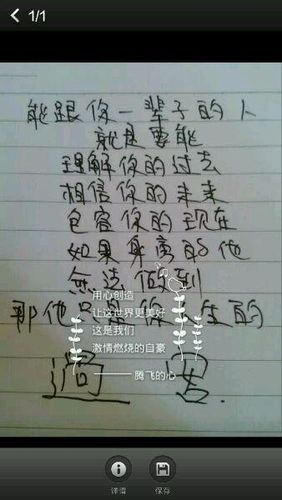 1/1
能跟你一辈子的人
就是要能
理解你的过去
相信你的未来
包容你的现在
如果身旁的他
无法做到
那他只是你人生的
过客.
用心创造
让这世界更美好
这是我们
激情燃烧的自豪
——腾飞的心
详情
保存